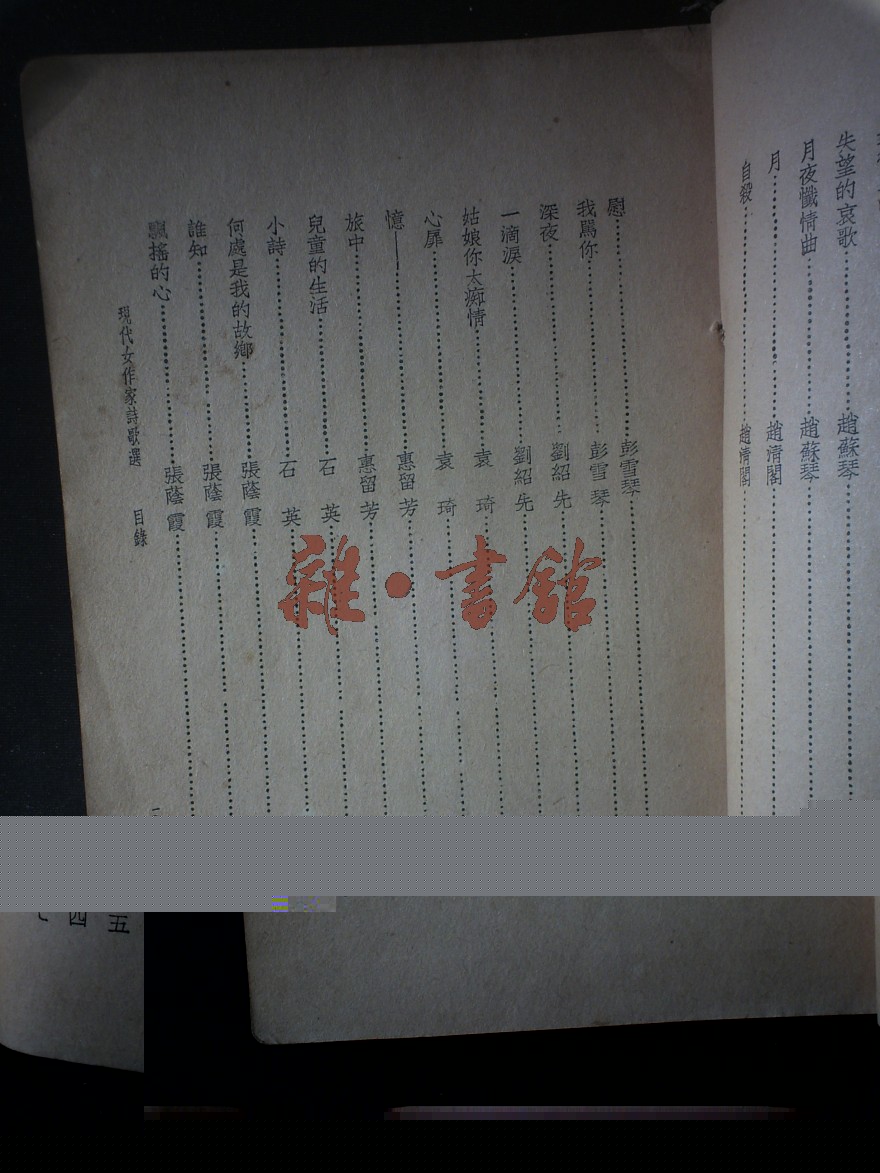 失望的哀歌 趙蘇琴
月夜懺情曲 趙蘇琴
月 趙清閣
自殺 趙清閣
慰 彭雪琴
我罵你 彭雪琴
深夜 劉紹先
一滴淚 劉紹先
姑娘你太痴情 袁琦
心扉 袁琦
憶—— 惠留芳
旅中 惠留芳
兒童的生活 石英
小詩 石英
何處是我的故鄉 張蔭霞
誰知 張蔭霞
飄搖的心 張蔭霞
現代女作家詩歌選 目錄
雜·書館
五
四